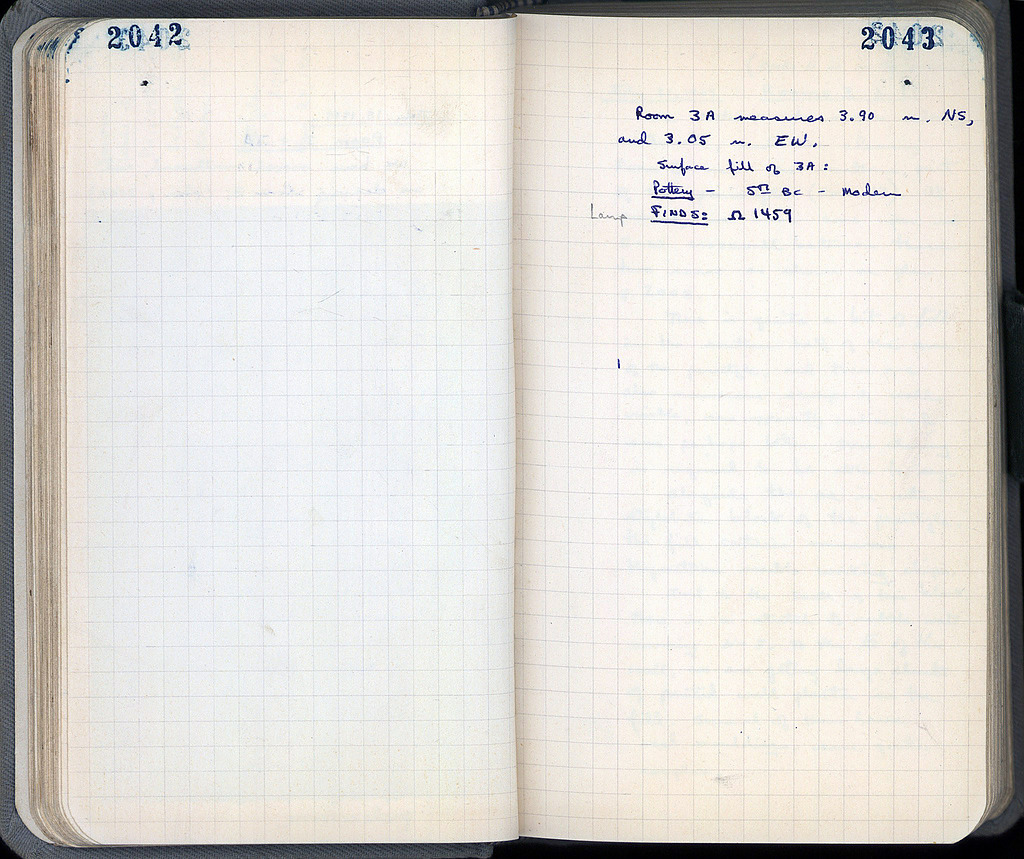 2042
2043
Room 3A measures 3.90 m. NS,
and 3.05 m. EW.
Surface fill of 3A:
Pottery – 5th BC – Modern
Lamp FINDS: Ω 1459